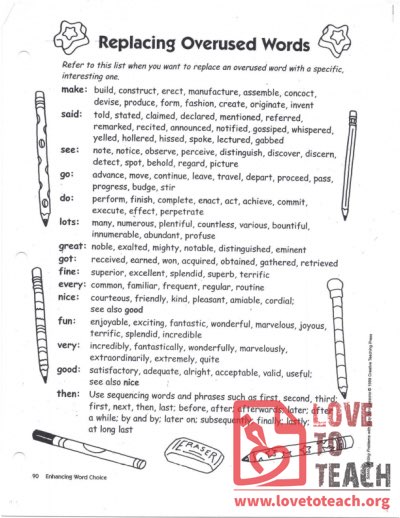 Replacing Overused Words
Refer to this list when you want to replace an overused word with a specific,
interesting one.
make: build, construct, erect, manufacture, assemble, concoct,
devise, produce, form, fashion, create, originate, invent
said: told, stated, claimed, declared, mentioned, referred,
remarked, recited, announced, notified, gossiped, whispered,
yelled, hollered, hissed, spoke, lectured, gabbed
see: note, notice, observe, perceive, distinguish, discover, discern,
detect, spot, behold, regard, picture
go: advance, move, continue, leave, travel, depart, proceed, pass,
progress, budge, stir
do: perform, finish, complete, enact, act, achieve, commit,
execute, effect, perpetrate
lots: many, numerous, plentiful, countless, various, bountiful,
innumerable, abundant, profuse
great: noble, exalted, mighty, notable, distinguished, eminent
got: received, earned, won, acquired, obtained, gathered, retrieved
fine: superior, excellent, splendid, superb, terrific
every: common, familiar, frequent, regular, routine
nice: courteous, friendly, kind, pleasant, amiable, cordial;
see also good
fun: enjoyable, exciting, fantastic, wonderful, marvelous, joyous,
terrific, splendid, incredible
very: incredibly, fantastically, wonderfully, marvelously,
extraordinarily, extremely, quite
good: satisfactory, adequate, alright, acceptable, valid, useful;
see also nice
then: Use sequencing words and phrases such as first, second, third;
first, next, then, last; before, after; afterwards, later; after
a while; by and by; later on; subsequently, finally; lastly;
at long last
ERASER
90 Enhancing Word Choice
1999 Creative Teaching Press
LOVE
TO
TEACH
www.lovetoteach.org